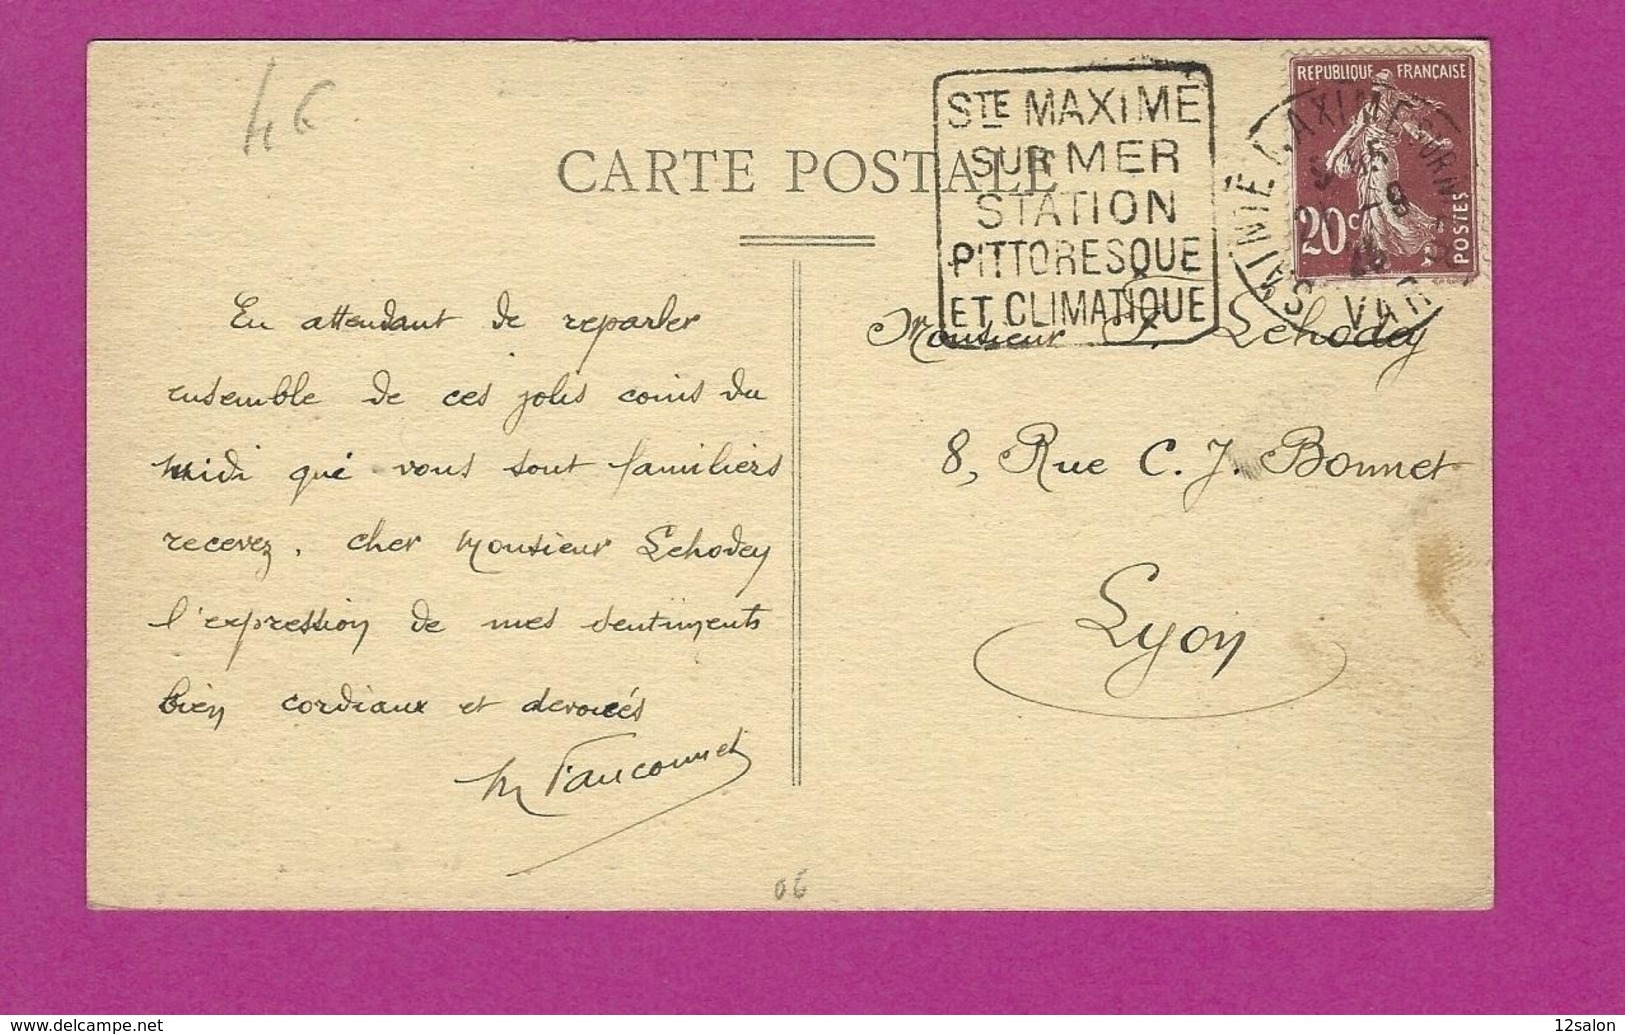 46
CARTE POSTALE
STE MAXIME
SUR MER
STATION
PITTORESQUE
ET CLIMATIQUE
REPUBLIQUE FRANÇAISE
20c
POSTES
VAR
En attendant de reparler
ensemble de ces jolis coins du
midi qui vous sont familiers
recevez, cher Monsieur Lehodey
l'expression de mes sentiments
bien cordiaux et devoués
M Fauconnet
Monsieur Lehodey
8, Rue C. J. Bonnet
Lyon
06
delcampe.net
12salon